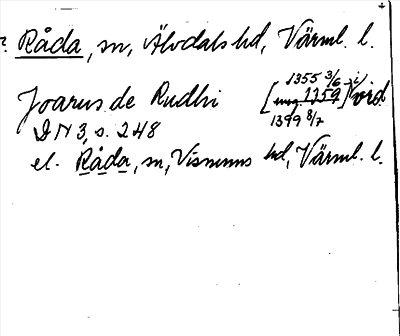 ? Råda, sn, Älvdals hd, Värml. l.
1355 3/6
Joarus de Rudhi [ 1359] i/ vid.
1399 8/7
DN 3, s. 248
el. Råda, sn, Visnums hd, Värml. l.